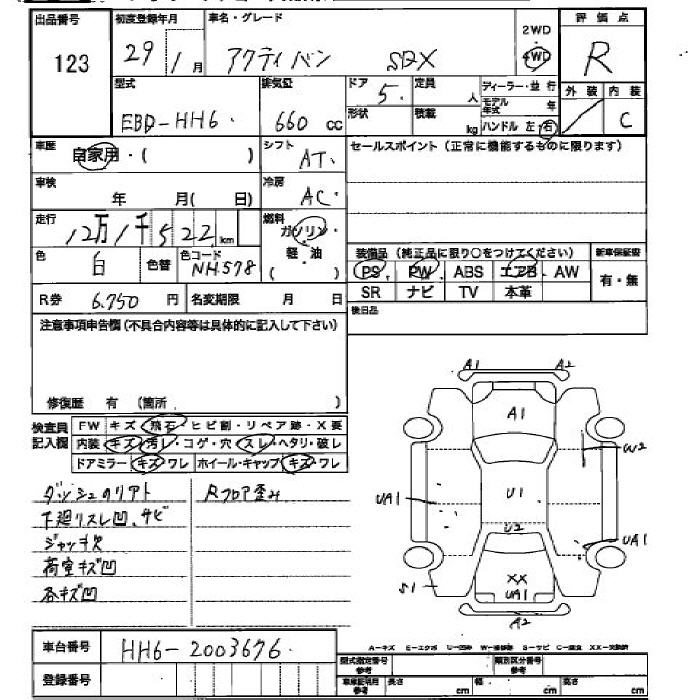 出品番号 初度登録年月 車名・グレード 2WD 評価点
123 29/1月 アクティバン SDX 4WD R
型式 排気量 ドア 定員 ディーラー・並行 外装 内装
EBD-HH6 660cc 5 人 モデル年式 年 C
形状 積載 kg ハンドル 左・右
車歴 自家用・( ) シフト AT セールスポイント(正常に機能するものに限ります)
車検 年 月( 日) 冷房 AC
走行 12万1千522km 燃料 ガソリン・軽・油 ( )
装備品(純正品に限り○をつけてください) 新車保証書
色 白 色替 色コード NH578
PS PW ABS エアB AW 有・無
SR ナビ TV 本革
R券 6,750円 名変期限 月 日
後日品
注意事項申告欄(不具合内容等は具体的に記入して下さい)
修復歴 有 (箇所 )
検査員記入欄
FW キズ・飛石・ヒビ割・リペア跡・X要
内装 キズ・汚レ・コゲ・穴・スレ・ヘタリ・破レ
ドアミラー キズ・ワレ ホイール・キャップ キズ・ワレ
Rフロア歪み
下廻りスレ凹、サビ
ジャッキ欠
荷室キズ凹
各キズ凹
A1 A2
A1
W2
UA1 U1
U2
UA1
XX
S1 UA1
A2
車台番号 HH6-2003676
登録番号
A-キズ E-エクボ U-凹み W-補修跡 S-サビ C-腐食 XX-交換済
型式指定番号 参考 類別区分番号 参考
車庫証明用 参考 長さ cm 幅 cm 高さ cm